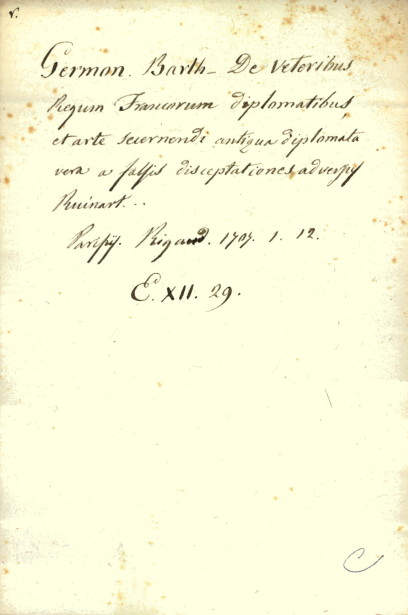 v.
German. Barth- De Veteribus
Regum Francorum diplomatibus
et arte secernendi antiqua diplomata
vera a falsis disceptationes adversus
Ruinart...
Parisijs. Rigaud. 1707. 1. 12.
E. XII. 29.